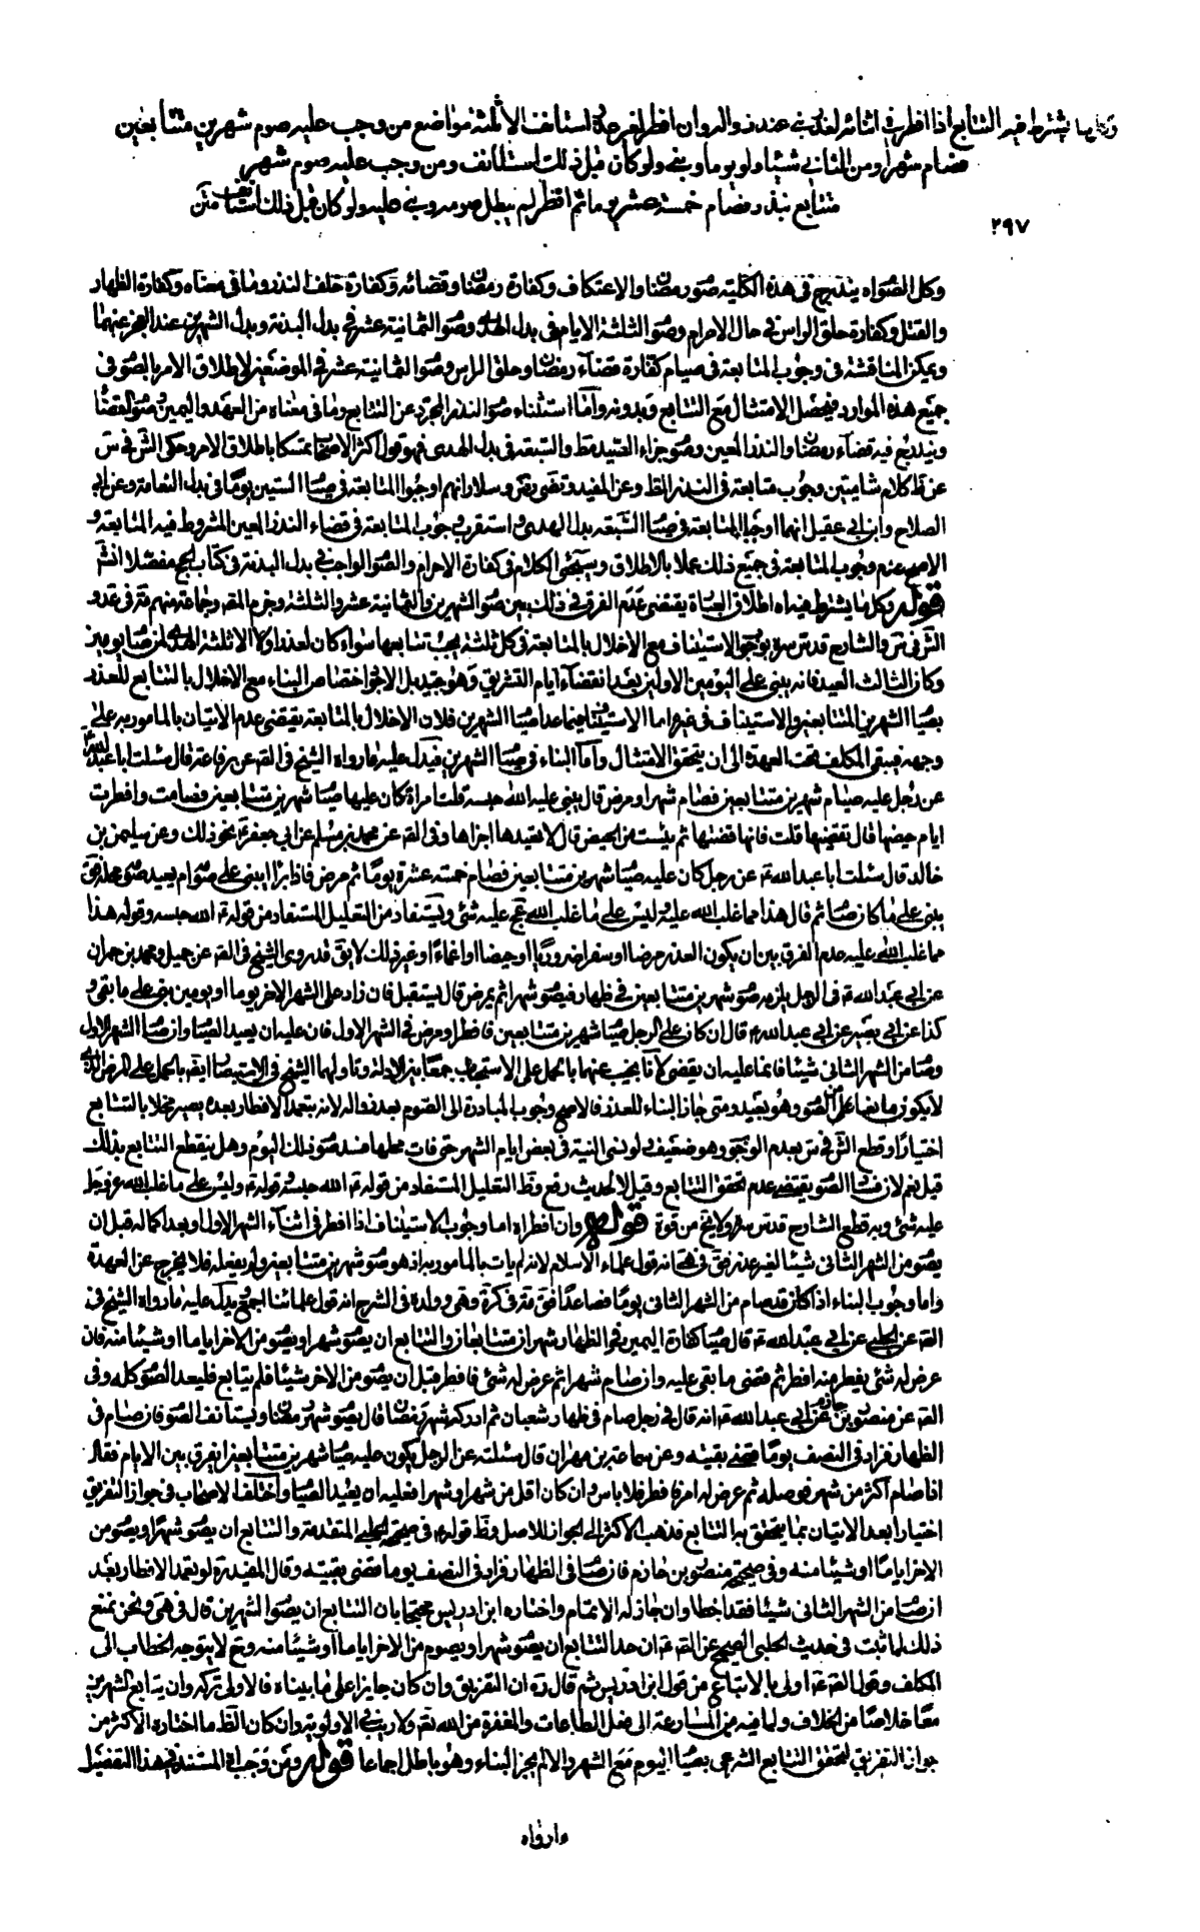 وكلما يشترط فيه التتابع اذا افطر في اثنائه لعذر بنى عند زواله وان افطر لغير عذر استانف الا ثلثة مواضع من وجب عليه صوم شهرين متتابعين
فصام شهرا ومن الثاني شيئا ولو يوما بنى ولو كان قبل ذلك استانف ومن وجب عليه صوم شهر
متتابع بنذر فصام خمسة عشر يوما ثم افطر لم يبطل صومه وبنى عليه ولو كان قبل ذلك استانف متن
٢٩٧
وكل الصوا ه يندرج في هذه الكلية صور رمضان والاعتكاف وكفارة رمضان وقضائه وكفارة خلف النذر وما في معناه وكفارة الظهار
والقتل وكفارة حلق الراس في حال الاحرام وصو الثلثة الايام في بدل الهدى وصو الثمانية عشر في بدل البدنة وبدل الشهرين عند العجز عنهما
ويمكن المناقشة في وجوب المتابعة في صيام كفارة قضآء رمضان وحلق الراس وصو الثمانية عشر في الموضعين لاطلاق الامر بالصو في
جميع هذه الموارد فيحصل الامتثال مع التتابع وبدونه وامّا استثناء صو النذر المجرد عن التتابع وما في معناه من العهد واليمين وصو القضا
ويندرج فيه قضآء رمضان والنذر المعين وصو جزاء الصيد مط والسبعة في بدل الهدى فهو قول اكثر الاصحا تمسكا باطلاق الامر وحكى الش في س
عن ظ كلام شاميين وجوب متابعة في النذر المط وعن المفيد وتقى وسلار انهم اوجبوا المتابعة في صيا الستين يومًا في بدل النعامة وعن ابي
الصلاح وابن ابي عقيل انهما اوجبا المتابعة في صيا السبعه بدل الهدى واستقرب وجوب المتابعة في قضاء النذر المعين المشروط فيه المتابعة و
الاصح عدم وجوب المتابعة في جميع ذلك عملا بالاطلاق وسيجئ الكلام في كفارة الاحرام والصو الواجب في بدل البدنة في كتاب الحج مفصلا انش
قوله وكل ما يشترط فيه اه اطلاق العبارة يقتضي عدم الفرق في ذلك بين صو الشهرين والثمانية عشر والثلثة وجزم المص وجماعة منهم في عد و
الش في س والشارح قدس سره بوجو الاستيناف مع الاخلال بالمتابعة في كل ثلثة يجب تتابعها سواء كان لعذر او لا الا ثلثة الهدى لمن صا يومين
وكان الثالث العيد فانه يبنى على اليومين الاولين بعد انقضآء ايام التشريق وهو جيد بل الاجو اختصاص البناء مع الاخلال بالتتابع للعذر
بصيا الشهرين المتتابعين والاستيناف في غيره اما الاستينا فيما عدا صيا الشهرين فلان الاخلال بالمتابعة يقتضي عدم الاتيان بالمامور به على
وجهه فيبقى المكلف تحت العهدة الى ان يتحقق الامتثال وامّا البناء في صيا الشهرين فيدل عليه ما رواه الشيخ في الق عن رفاعة قال سئلت ابا عبد الله
عن رجل عليه صيام شهرين متتابعين فصام شهرا ومرض قال يبنى عليه الله حبسه قلت امراة كان عليها صيا شهرين متتابعين فصامت وافطرت
ايام حيضها قال تقضيها قلت فانها قضتها ثم يئست من الحيض قال لا تعيدها اجزاها وفي الق عن محمد بن مسلم عن ابي جعفر ع نحو ذلك وعن سليمن بن
خالد قال سئلت ابا عبد الله ع عن رجل كان عليه صيا شهرين متتابعين فصام خمسة عشرة يومًا ثم مرض فاذا برا ايبنى على صو ام يعيد صو كله فق
يبنى على ما كان صا ثم قال هذا مما غلب الله عليه وليس على ما غلب الله عج عليه شئ ويستفاد من التعليل المستفاد من قوله ع الله حبسه وقوله هذا
مما غلب الله عليه عدم الفرق بين ان يكون العذر مرضا او سفرا ضروريًا او حيضا او اغماءً او غير ذلك لا يق قد روى الشيخ في الق عن جميل ومحمد بن حمران
عن ابي عبد الله ع في الرجل يلزمه صو شهرين متتابعين في ظهار فيصو شهرا ثم يمرض قال يستقبل فان زاد على الشهر الاخر يوما او يومين بنى على ما بقى و
كذا عن ابي بصير عن ابي عبد الله ع قال ان كان على الرجل صيا شهرين متتابعين فافطر او مرض في الشهر الاول فان عليه ان يعيد الصيا وان صا الشهر الاول
وصا من الشهر الثاني شيئا فانما عليه ان يقضي لانا نجيب عنهما بالحمل على الاستحباب جمعًا بين الادلة وتاولهما الشيخ في الاستبصا ايض بالحمل على المرض الذي
لا يكون مانعا عن الصو وهو بعيد ومتى جاز البناء للعذر فالاصح وجوب المبادرة الى الصوم بعد زواله لانه بتعمد الافطار بعده يصير مخلا بالتتابع
اختيارًا وقطع الش في س بعدم الوجو وهو ضعيف ولو نسى النية في بعض ايام الشهر حتى فات محلها فسد صو ذلك اليوم وهل ينقطع التتابع بذلك
قيل نعم لان فسا الصو يقتضي عدم تحقق التتابع وقيل لا لحديث رفع وظ التعليل المستفاد من قوله ع الله حبسه وقوله ع وليس على ما غلب الله عز وجل
عليه شئ وبه قطع الشارح قدس سره ولا يخ من قوة قوله وان افطر اه اما وجوب الاستيناف اذا افطر في اثنآء الشهر الاول او بعد اكماله قبل ان
يصو من الشهر الثاني شيئا لغير عذر فق في هى انه قول علماء الاسلام لانه لم يات بالمامور به اذ هو صو شهرين متتابعين ولم يفعله فلا يخرج عن العهدة
واما وجوب البناء اذا كان قد صام من الشهر الثاني يومًا فصاعدًا فق في كرة وهى وولده في الشرح انه قول علمائنا اجمع يدل عليه ما رواه الشيخ في
الق عن الحلبي عن ابي عبد الله ع قال صيا كفارة اليمين في الظهار شهران متتابعان والتتابع ان يصو شهرا ويصو من الاخر اياما او شيئا منه فان
عرض له شئ يفطر منه افطر ثم قضى ما بقى عليه وان صام شهرا ثم عرض له شئ فافطر قبل ان يصو من الاخر شيئا فلم يتابع فليعد الصو كله وفي
الق عن منصور بن حازم عن ابي عبد الله ع انه قال في رجل صام في ظهار شعبان ثم ادركه شهر رمضان قال يصو شهر رمضان ويستانف الصو فان صام في
الظهار فزاد في النصف يومًا قضى بقيته وعن سماعة بن مهران قال سئلته عن الرجل يكون عليه صيا شهرين متتابعين ايفرق بين الايام فقال
اذا صام اكثر من شهر فوصله ثم عرض له امر فافطر فلا باس وان كان اقل من شهر او شهرا فعليه ان يعيد الصيا واختلف الاصحاب في جواز التفريق
اختيارا بعد الاتيان بما يتحقق به التتابع فذهب الاكثر الى الجواز للاصل وظ قوله ع في صحيحة الحلبي المتقدمة والتتابع ان يصو شهرًا ويصو من
الاخر ايامًا او شيئا منه وفي صحيحة منصور بن حازم فان صا في الظهار فزاد في النصف يوما قضى بقيته وقال المفيد ره لو تعمد الافطار بعد
ان صا من الشهر الثاني شيئا فقد اخطا وان جاز له الاتمام واختاره ابن ادريس محتجا بان التتابع ان يصو الشهرين قال في هى ونحن نمنع
ذلك لما ثبت في حديث الحلبي الصحيح عن الق ع ان حد التتابع ان يصو شهرا ويصوم من الاخر اياما او شيئا منه ومع لا يتوجه الخطاب الى
المكلف وقول الق ع اولى بالاتباع من قول ابن ادريس ثم قال ره ان التفريق وان كان جايزا على ما بيناه فالاولى تركه وان يتابع الشهرين
معًا خلاصًا من الخلاف ولما فيه من المسارعة الى فعل الطاعات والمغفرة من الله تع ولا ريب في الاولوية وان كان الظ ما اختاره الاكثر من
جواز التفريق لتحقق التتابع الشرعي بصيا اليوم مع الشهر والا لم يجز البناء وهو باطل اجماعا قوله ومن وجب اه المستند في هذا التفصيل
ما رواه